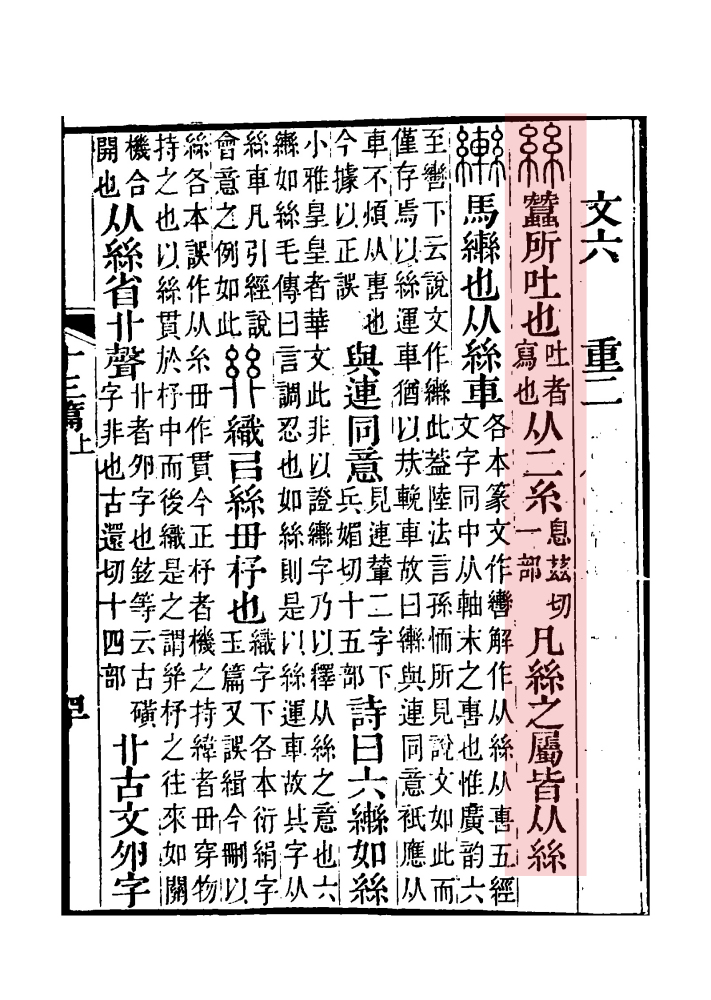 文六　重二
絲蠶所吐也吐者寫也从二糸息茲切一部凡絲之屬皆从絲
𦆕馬𦆕也从絲車各本篆文作轡解作从絲从軎五經文字同中从軸末之軎也惟廣韵六
至轡下云說文作𦆕此葢陸法言孫愐所見說文如此而僅存焉以絲運車猶以扶輓車故曰𦆕與連同意衹應从
車不煩从軎也今據以正誤與連同意見連輦二字下兵媚切十五部詩曰六𦆕如絲
小雅皇皇者華文此非以證𦆕字乃以釋从絲之意也六𦆕如絲毛傳曰言調忍也如絲則是以絲運車故其字从
絲車凡引經說會意之例如此𢇇織㠯絲毌杼也織字下各本衍絹字玉篇又誤緝今刪以
絲各本誤作从糸毌作貫今正杼者機之持緯者毌穿物持之也以絲貫於杼中而後織是之謂𢇇杼之往來如關
機合開也从絲省卝聲卝者卵字也鉉等云古磺字非也古還切十四部卝古文卵字
十三篇上